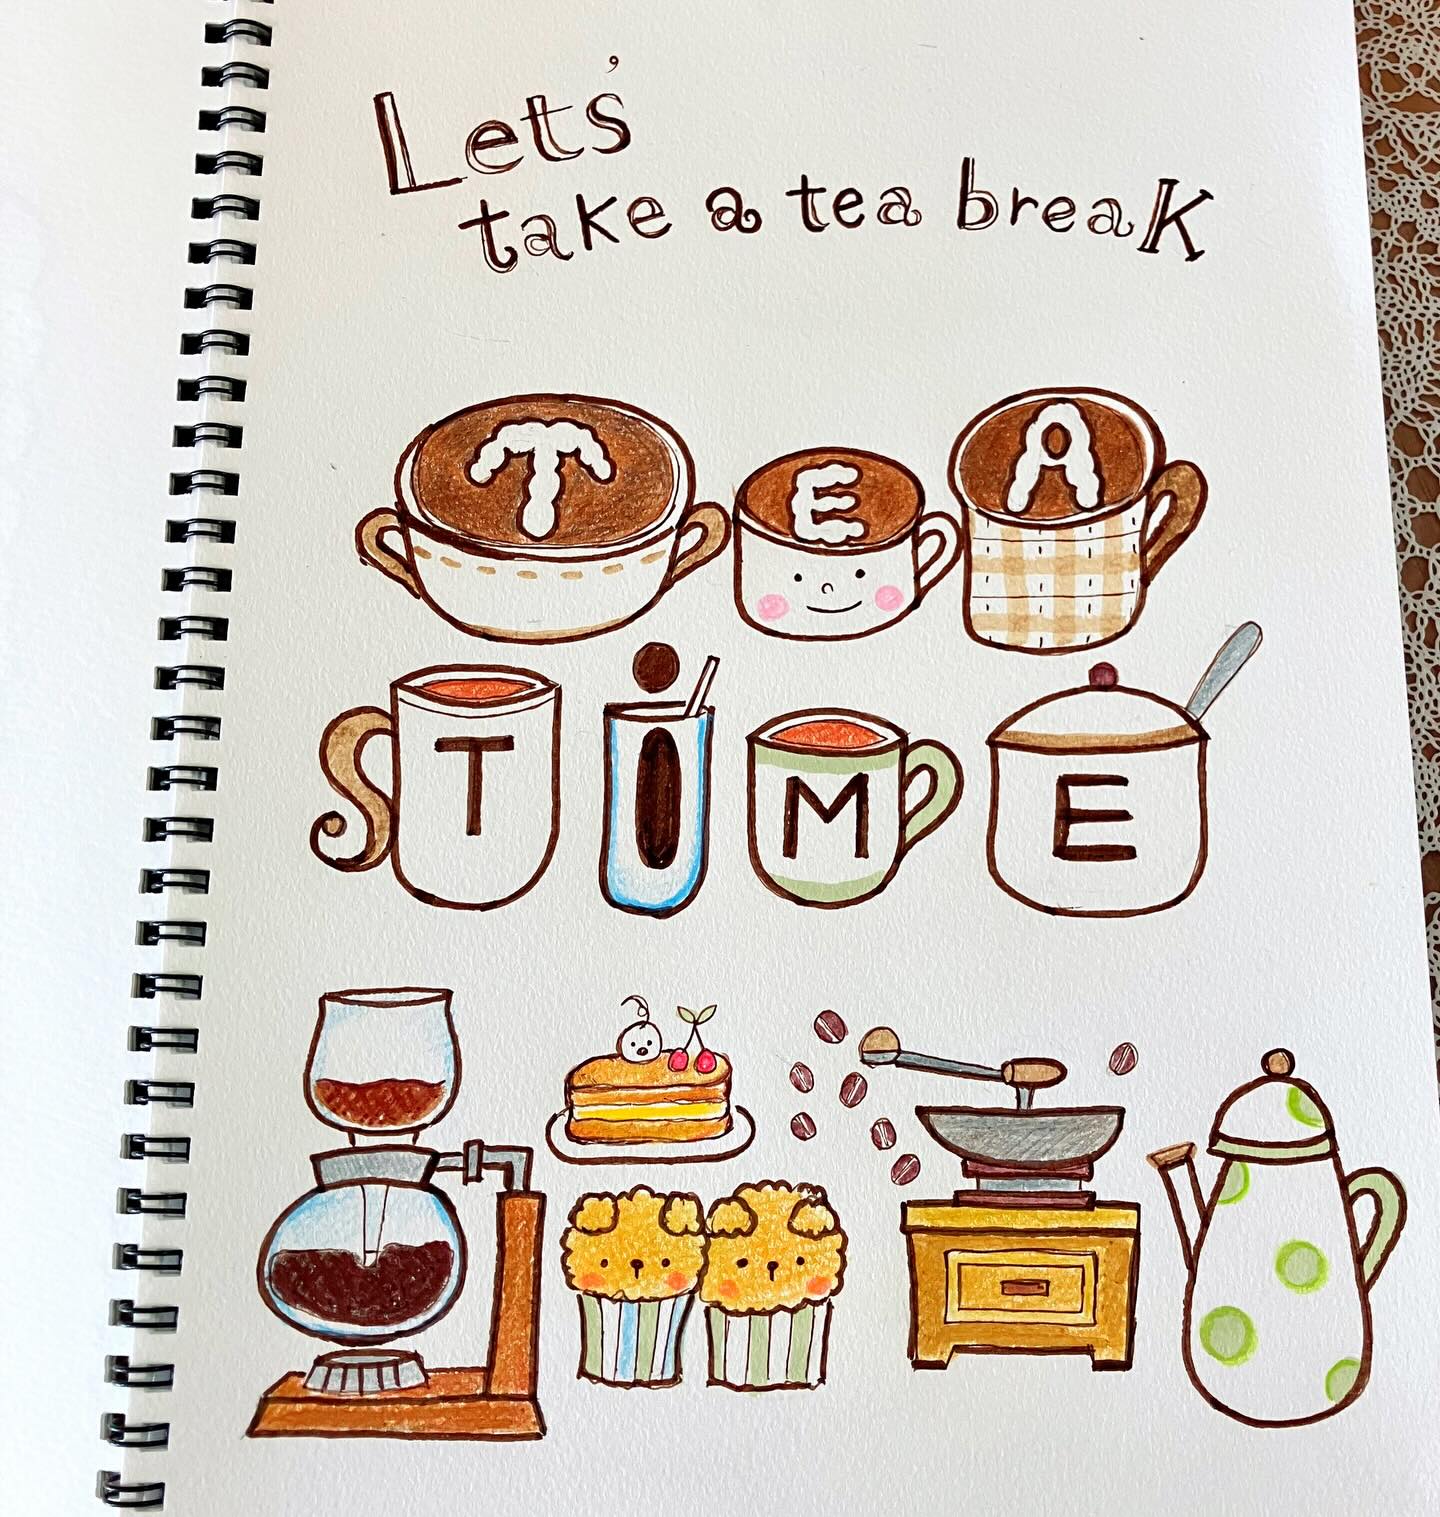 Lets'
take a tea break
TEA
TiME